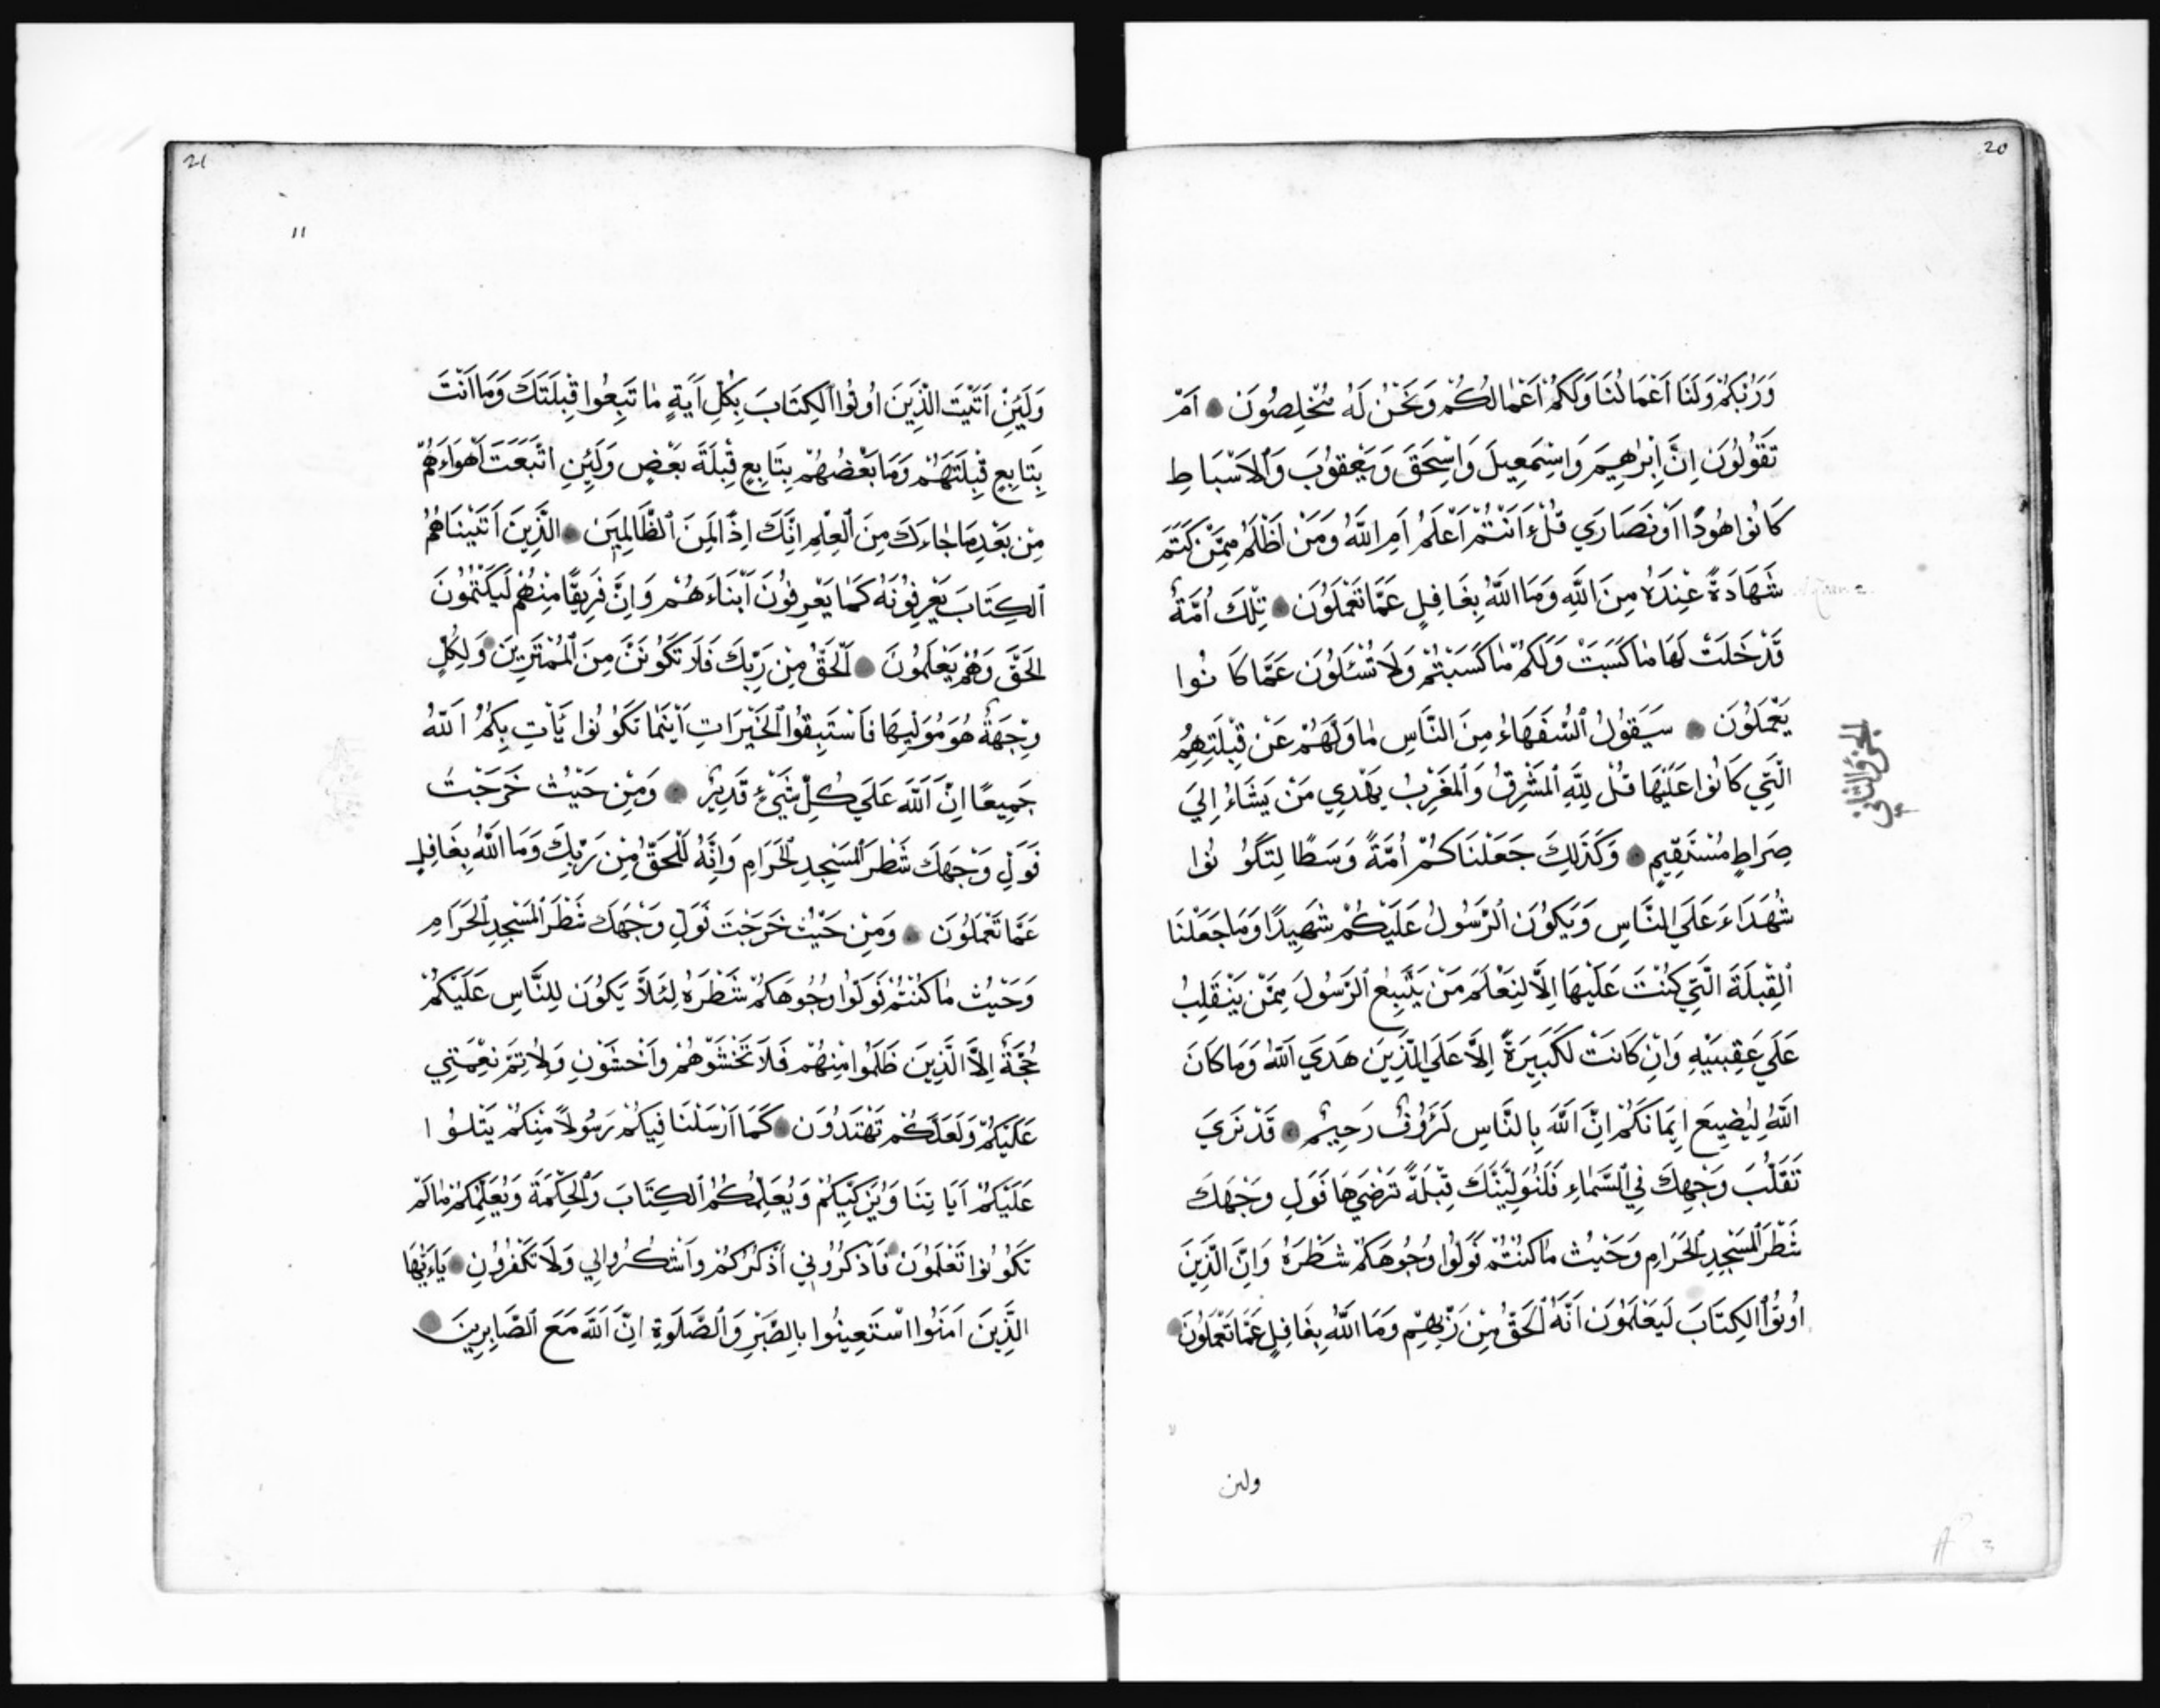 20
وَرَبُّكُمْ وَلَنَا أَعْمَالُنَا وَلَكُمْ أَعْمَالُكُمْ وَنَحْنُ لَهُ مُخْلِصُونَ أَمْ
تَقُولُونَ إِنَّ إِبْرٰهِيمَ وَإِسْمٰعِيلَ وَإِسْحٰقَ وَيَعْقُوبَ وَالْأَسْبَاطِ
كَانُوا هُودًا أَوْ نَصَارَي قُلْ ءَأَنْتُمْ أَعْلَمُ أَمِ اللَّهُ وَمَنْ أَظْلَمُ مِمَّنْ كَتَمَ
شَهَادَةً عِنْدَهُ مِنَ اللَّهِ وَمَا اللَّهُ بِغَافِلٍ عَمَّا تَعْمَلُونَ تِلْكَ أُمَّةٌ
قَدْ خَلَتْ لَهَا مَا كَسَبَتْ وَلَكُمْ مَا كَسَبْتُمْ وَلَا تُسْئَلُونَ عَمَّا كَانُوا
يَعْمَلُونَ سَيَقُولُ السُّفَهَاءُ مِنَ النَّاسِ مَا وَلّٰهُمْ عَنْ قِبْلَتِهِمُ
الَّتِي كَانُوا عَلَيْهَا قُلْ لِلَّهِ الْمَشْرِقُ وَالْمَغْرِبُ يَهْدِي مَنْ يَشَاءُ إِلَي
صِرَاطٍ مُسْتَقِيمٍ وَكَذٰلِكَ جَعَلْنَاكُمْ أُمَّةً وَسَطًا لِتَكُونُوا
شُهَدَاءَ عَلَي النَّاسِ وَيَكُونَ الرَّسُولُ عَلَيْكُمْ شَهِيدًا وَمَا جَعَلْنَا
الْقِبْلَةَ الَّتِي كُنْتَ عَلَيْهَا إِلَّا لِنَعْلَمَ مَنْ يَتَّبِعُ الرَّسُولَ مِمَّنْ يَنْقَلِبُ
عَلَي عَقِبَيْهِ وَإِنْ كَانَتْ لَكَبِيرَةً إِلَّا عَلَي الَّذِينَ هَدَي اللَّهُ وَمَا كَانَ
اللَّهُ لِيُضِيعَ إِيمَانَكُمْ إِنَّ اللَّهَ بِالنَّاسِ لَرَؤُفٌ رَحِيمٌ قَدْ نَرَي
تَقَلُّبَ وَجْهِكَ فِي السَّمَاءِ فَلَنُوَلِّيَنَّكَ قِبْلَةً تَرْضَيهَا فَوَلِّ وَجْهَكَ
شَطْرَ الْمَسْجِدِ الْحَرَامِ وَحَيْثُ مَا كُنْتُمْ فَوَلُّوا وُجُوهَكُمْ شَطْرَهُ وَإِنَّ الَّذِينَ
أُوتُوا الْكِتَابَ لَيَعْلَمُونَ أَنَّهُ الْحَقُّ مِنْ رَبِّهِمْ وَمَا اللَّهُ بِغَافِلٍ عَمَّا تَعْمَلُونَ
الجزؤ الثاني
ولئن
21
١١
وَلَئِنْ أَتَيْتَ الَّذِينَ أُوتُوا الْكِتَابَ بِكُلِّ آيَةٍ مَا تَبِعُوا قِبْلَتَكَ وَمَا أَنْتَ
بِتَابِعٍ قِبْلَتَهُمْ وَمَا بَعْضُهُمْ بِتَابِعٍ قِبْلَةَ بَعْضٍ وَلَئِنِ اتَّبَعْتَ أَهْوَاءَهُمْ
مِنْ بَعْدِ مَا جَاءَكَ مِنَ الْعِلْمِ إِنَّكَ إِذًا لَمِنَ الظَّالِمِينَ الَّذِينَ آتَيْنَاهُمُ
الْكِتَابَ يَعْرِفُونَهُ كَمَا يَعْرِفُونَ أَبْنَاءَهُمْ وَإِنَّ فَرِيقًا مِنْهُمْ لَيَكْتُمُونَ
الْحَقَّ وَهُمْ يَعْلَمُونَ الْحَقُّ مِنْ رَبِّكَ فَلَا تَكُونَنَّ مِنَ الْمُمْتَرِينَ وَلِكُلٍّ
وِجْهَةٌ هُوَ مُوَلِّيهَا فَاسْتَبِقُوا الْخَيْرَاتِ أَيْنَمَا تَكُونُوا يَأْتِ بِكُمُ اللَّهُ
جَمِيعًا إِنَّ اللَّهَ عَلَي كُلِّ شَيْءٍ قَدِيرٌ وَمِنْ حَيْثُ خَرَجْتَ
فَوَلِّ وَجْهَكَ شَطْرَ الْمَسْجِدِ الْحَرَامِ وَإِنَّهُ لَلْحَقُّ مِنْ رَبِّكَ وَمَا اللَّهُ بِغَافِلٍ
عَمَّا تَعْمَلُونَ وَمِنْ حَيْثُ خَرَجْتَ فَوَلِّ وَجْهَكَ شَطْرَ الْمَسْجِدِ الْحَرَامِ
وَحَيْثُ مَا كُنْتُمْ فَوَلُّوا وُجُوهَكُمْ شَطْرَهُ لِئَلَّا يَكُونَ لِلنَّاسِ عَلَيْكُمْ
حُجَّةٌ إِلَّا الَّذِينَ ظَلَمُوا مِنْهُمْ فَلَا تَخْشَوْهُمْ وَاخْشَوْنِ وَلِأُتِمَّ نِعْمَتِي
عَلَيْكُمْ وَلَعَلَّكُمْ تَهْتَدُونَ كَمَا أَرْسَلْنَا فِيكُمْ رَسُولًا مِنْكُمْ يَتْلُوا
عَلَيْكُمْ آيَاتِنَا وَيُزَكِّيكُمْ وَيُعَلِّمُكُمُ الْكِتَابَ وَالْحِكْمَةَ وَيُعَلِّمُكُمْ مَا لَمْ
تَكُونُوا تَعْلَمُونَ فَاذْكُرُونِي أَذْكُرْكُمْ وَاشْكُرُوا لِي وَلَا تَكْفُرُونِ يَاءَيُّهَا
الَّذِينَ آمَنُوا اسْتَعِينُوا بِالصَّبْرِ وَالصَّلٰوةِ إِنَّ اللَّهَ مَعَ الصَّابِرِينَ